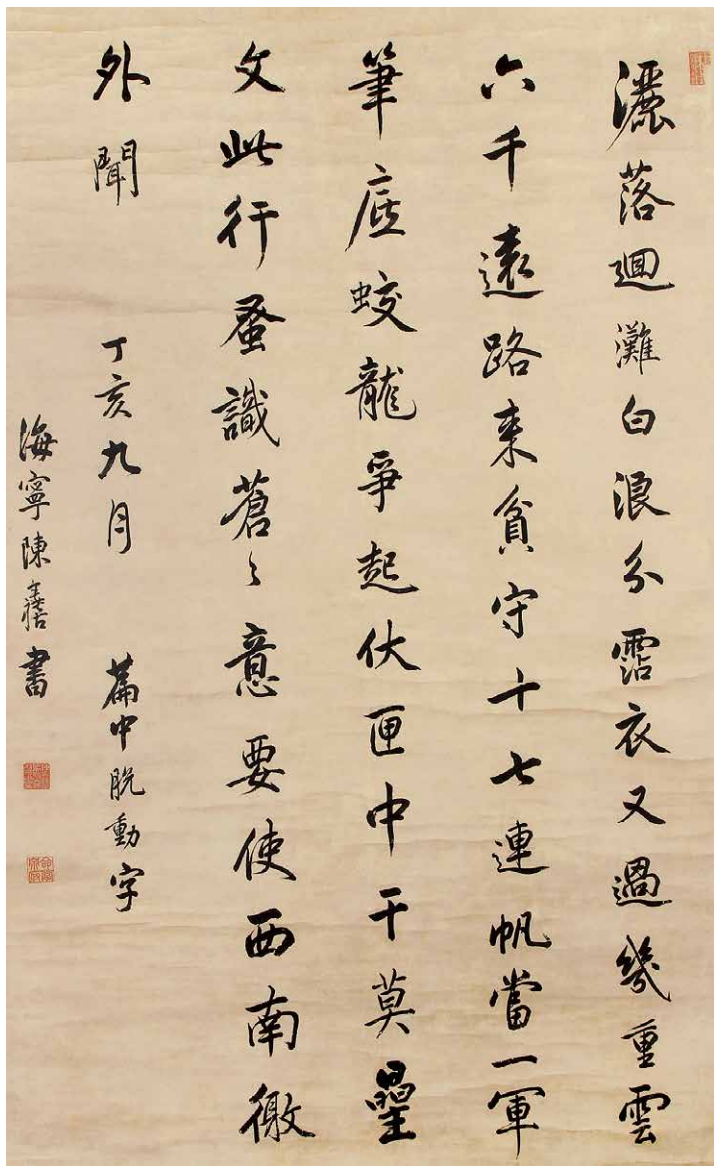 灑落迴灘白浪分霑衣又過幾重雲
六千遠路来貧守十七連帆當一軍
筆底蛟龍爭起伏匣中干莫曐
文此行蚤識蒼〻意要使西南徼
外聞 丁亥九月 篇中脫動字
海寧陳奕禧書